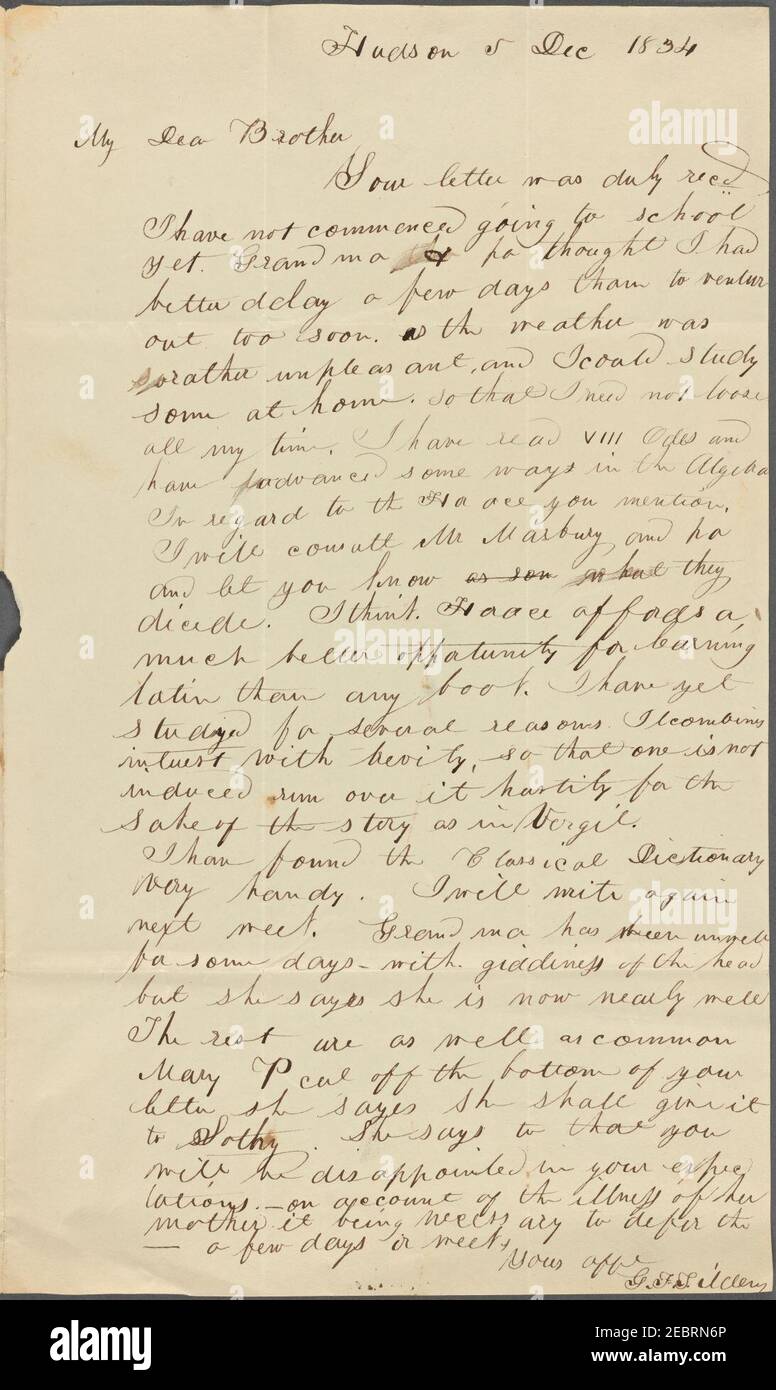 Hudson 5 Dec 1834
My Dear Brother
Your letter was duly recd
I have not commenced going to school
yet. Grandma & pa thought I had
better delay a few days than to ventur
out too soon. as the weather was
rather unpleasant, and I could study
some at home. so that I need not loose
all my time. I have read VIII Odes and
have advanced some ways in the Algebra
In regard to th Horace you mention.
I will consult Mr Marbury and pa
and let you know as soon what they
dicede. I think Horace affords a
much better oppatunity for learning
latin than any book. I have yet
studyed for several reasons. It combines
interest with brevity, so that one is not
induced run over it hastily for the
sake of the story as in Vergil.
I have found the Classical Dictionary
very handy. I will write again
next week. Grandma has been unwell
for some days - with giddiness of the head
but she says she is now nearly well
The rest are as well as common
Mary P cut off the bottom of your
letter she sayes she shall give it
to . She says to that you
will be disappointed in your expec
tations. - on account of the illness of her
mother it being necessary to defer the
— a few days or weeks
Yours affe
G. F. Tilden
alamy
a
Image ID: 2EBRN6P
www.alamy.com